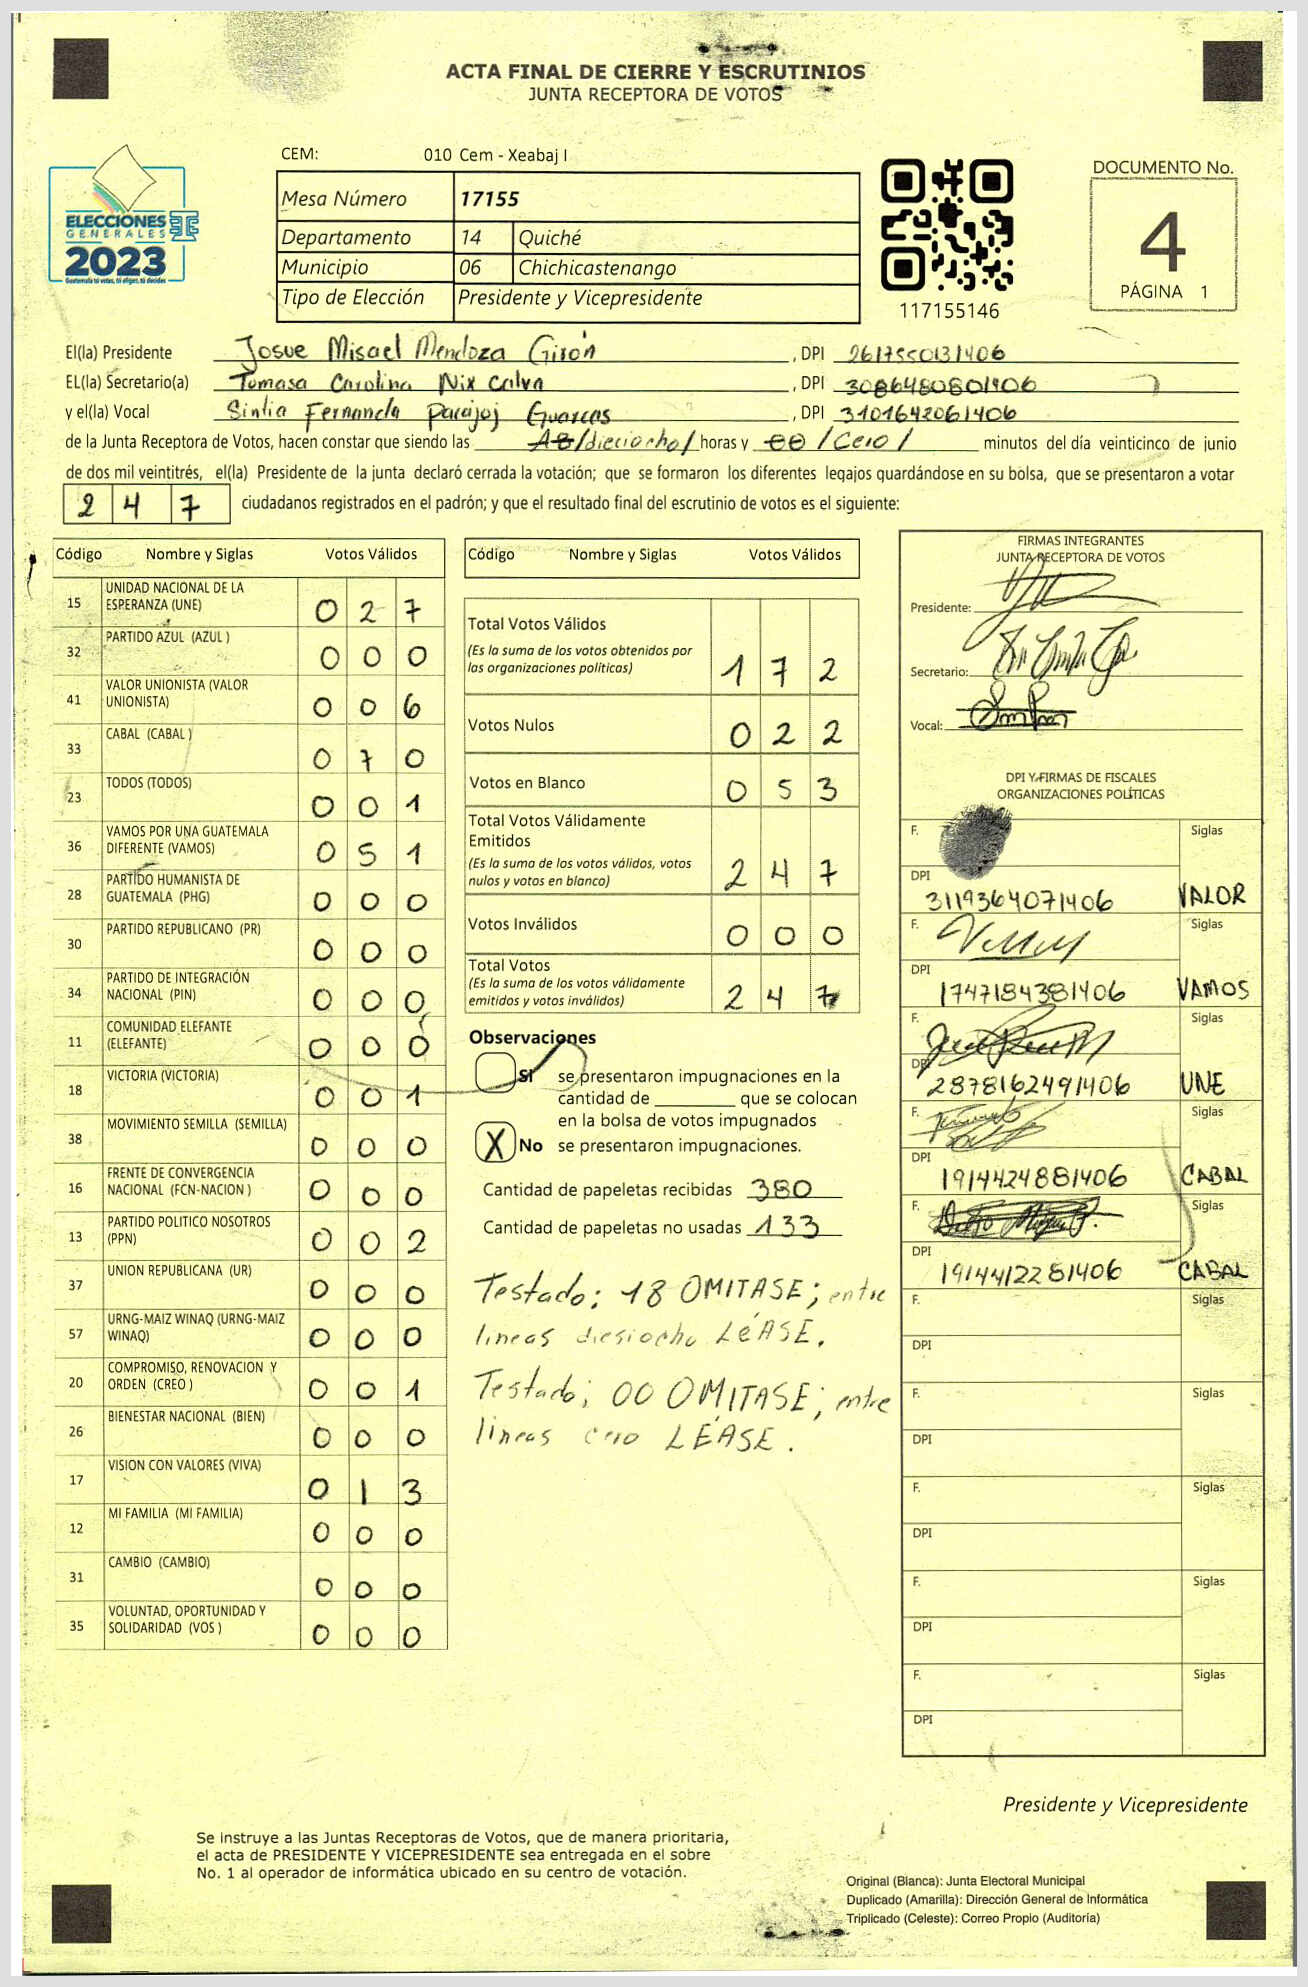 ACTA FINAL DE CIERRE Y ESCRUTINIOS
JUNTA RECEPTORA DE VOTOS
CEM: 010 Cem - Xeabaj I
ELECCIONES
GENERALES
2023
Guatemala tú votas, tú eliges, tú decides
Mesa Número 17155
Departamento 14 Quiché
Municipio 06 Chichicastenango
Tipo de Elección Presidente y Vicepresidente
117155146
DOCUMENTO No.
4
PÁGINA 1
El(la) Presidente Josue Misael Mendoza Girón , DPI 2617550131406
EL(la) Secretario(a) Tomasa Carolina Nix Calva , DPI 3086480801406
y el(la) Vocal Sintia Fernanda Pacajoj Guarcas , DPI 3101642061406
de la Junta Receptora de Votos, hacen constar que siendo las 18 /dieciocho/ horas y 00 /Cero/ minutos del día veinticinco de junio
de dos mil veintitrés, el(la) Presidente de la junta declaró cerrada la votación; que se formaron los diferentes legajos guardándose en su bolsa, que se presentaron a votar
2 4 7 ciudadanos registrados en el padrón; y que el resultado final del escrutinio de votos es el siguiente:
Código Nombre y Siglas Votos Válidos
15 UNIDAD NACIONAL DE LA
ESPERANZA (UNE) 0 2 7
32 PARTIDO AZUL (AZUL ) 0 0 0
41 VALOR UNIONISTA (VALOR
UNIONISTA) 0 0 6
33 CABAL (CABAL ) 0 7 0
23 TODOS (TODOS) 0 0 1
36 VAMOS POR UNA GUATEMALA
DIFERENTE (VAMOS) 0 5 1
28 PARTIDO HUMANISTA DE
GUATEMALA (PHG) 0 0 0
30 PARTIDO REPUBLICANO (PR) 0 0 0
34 PARTIDO DE INTEGRACIÓN
NACIONAL (PIN) 0 0 0
11 COMUNIDAD ELEFANTE
(ELEFANTE) 0 0 0
18 VICTORIA (VICTORIA) 0 0 1
38 MOVIMIENTO SEMILLA (SEMILLA) 0 0 0
16 FRENTE DE CONVERGENCIA
NACIONAL (FCN-NACION ) 0 0 0
13 PARTIDO POLITICO NOSOTROS
(PPN) 0 0 2
37 UNION REPUBLICANA (UR) 0 0 0
57 URNG-MAIZ WINAQ (URNG-MAIZ
WINAQ) 0 0 0
20 COMPROMISO, RENOVACION Y
ORDEN (CREO ) 0 0 1
26 BIENESTAR NACIONAL (BIEN) 0 0 0
17 VISION CON VALORES (VIVA) 0 1 3
12 MI FAMILIA (MI FAMILIA) 0 0 0
31 CAMBIO (CAMBIO) 0 0 0
35 VOLUNTAD, OPORTUNIDAD Y
SOLIDARIDAD (VOS ) 0 0 0
Código Nombre y Siglas Votos Válidos
Total Votos Válidos
(Es la suma de los votos obtenidos por
las organizaciones políticas) 1 7 2
Votos Nulos 0 2 2
Votos en Blanco 0 5 3
Total Votos Válidamente
Emitidos
(Es la suma de los votos válidos, votos
nulos y votos en blanco) 2 4 7
Votos Inválidos 0 0 0
Total Votos
(Es la suma de los votos válidamente
emitidos y votos inválidos) 2 4 7
Observaciones
SI se presentaron impugnaciones en la
cantidad de ________ que se colocan
en la bolsa de votos impugnados
X No se presentaron impugnaciones.
Cantidad de papeletas recibidas 380
Cantidad de papeletas no usadas 133
Testado: 18 OMITASE; entre
lineas diesiocho LÉASE.
Testado; 00 OMITASE; entre
lineas cero LÉASE.
FIRMAS INTEGRANTES
JUNTA RECEPTORA DE VOTOS
Presidente:
Secretario:
Vocal:
DPI Y FIRMAS DE FISCALES
ORGANIZACIONES POLÍTICAS
F. Siglas
DPI
3119364071406 VALOR
F. Siglas
DPI
1747184381406 VAMOS
F. Siglas
DPI
2878162491406 UNE
F. Siglas
DPI
1914424881406 CABAL
F. Siglas
DPI
1914412281406 CABAL
F. Siglas
DPI
F. Siglas
DPI
F. Siglas
DPI
F. Siglas
DPI
F. Siglas
DPI
Presidente y Vicepresidente
Se instruye a las Juntas Receptoras de Votos, que de manera prioritaria,
el acta de PRESIDENTE Y VICEPRESIDENTE sea entregada en el sobre
No. 1 al operador de informática ubicado en su centro de votación.
Original (Blanca): Junta Electoral Municipal
Duplicado (Amarilla): Dirección General de Informática
Triplicado (Celeste): Correo Propio (Auditoría)